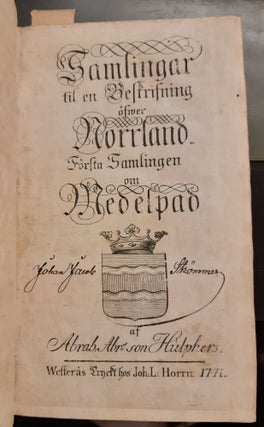 Samlingar
til en Beskrifning
öfwer
Norrland.
Första Samlingen
om
Medelpad
Johan Jacob Skömmer
af
Abrah. Abrs son Hülphers.
Westerås Tryckt hos Joh. L: Horrn 1771.